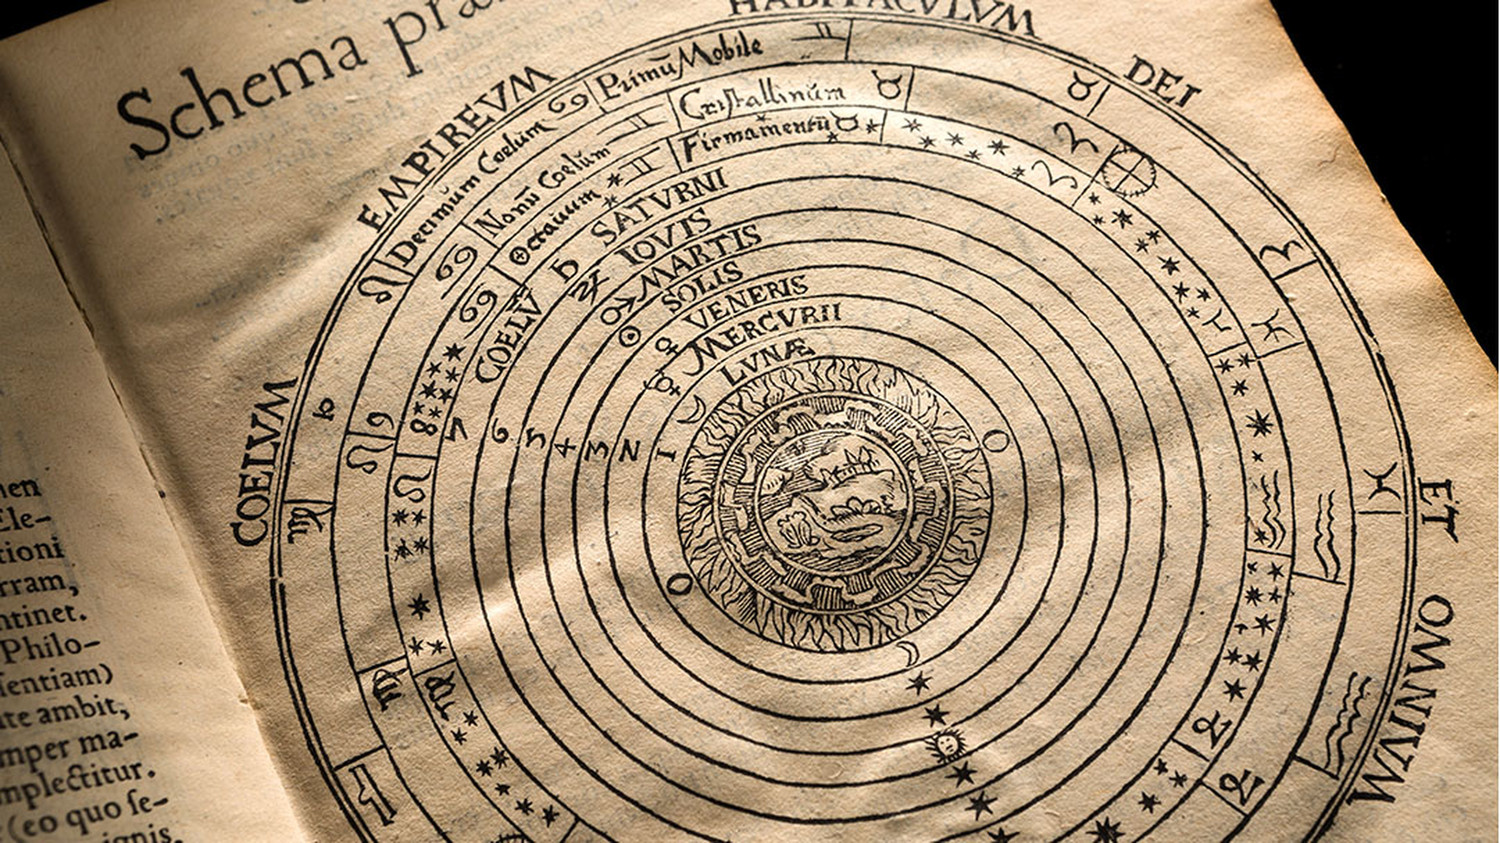 Schema præ
COELVM EMPIREVM HABITACVLVM DEI ET OMNIVM
Decimum Coelum Primũ Mobile
Nonũ Coelum Cristallinũm
Octauum Firmamentũ
COELV
SATVRNI
IOVIS
MARTIS
SOLIS
VENERIS
MERCVRII
LVNÆ
8 7 6 5 4 3 2 1
nen
Ele-
tioni
rram,
ntinet.
Philo-
ſentiam)
ate ambit,
mper ma-
mplectitur.
(eo quo ſe-
ignis.